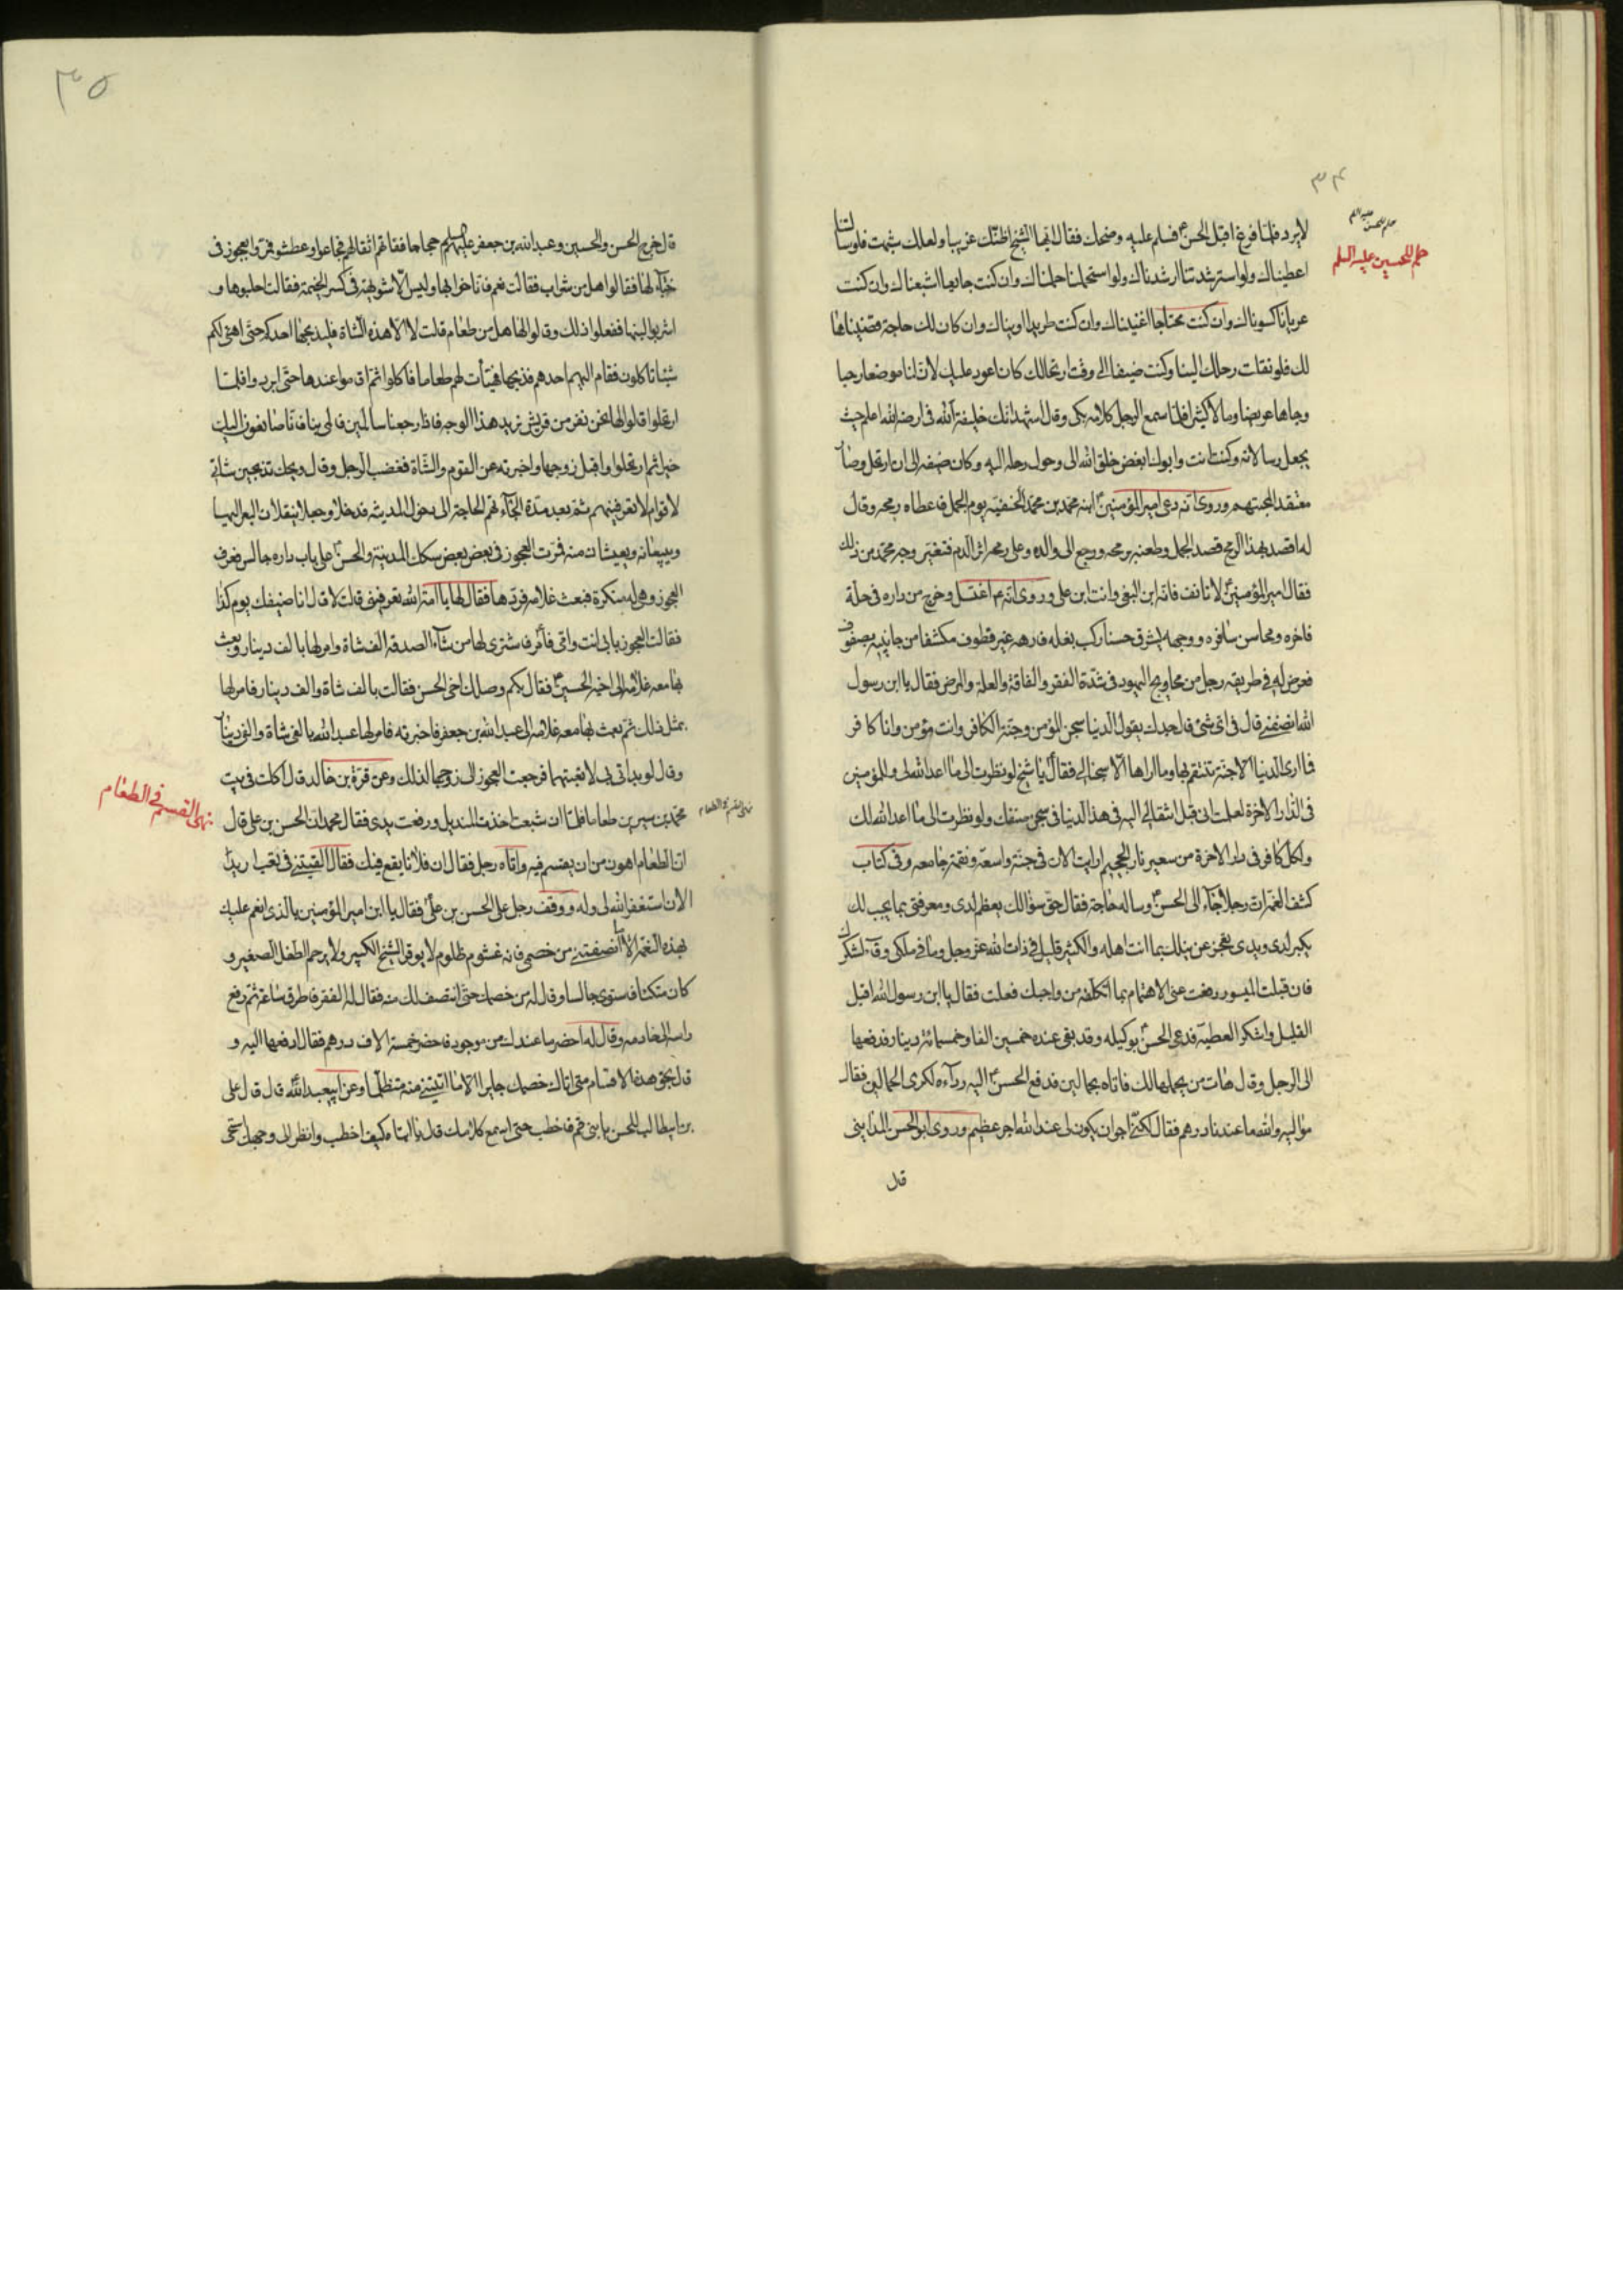 ٣٤
حلم الحسن عليه السلم
حلم الحسين عليه السلم
لا يرد فلما فرغ اقبل الحسن ع فسلم عليه وضحك فقال ايها الشيخ اظنك غريبا ولعلك شبهت فلو سالتنا
اعطيناك ولو استرشدتنا ارشدناك ولو استحملتنا حملناك وان كنت جايعا اشبعناك وان كنت
عريانا كسوناك وان كنت محتاجا اغنيناك وان كنت طريدا اويناك وان كان لك حاجة قضيناها
لك فلو نقلت رحلك الينا وكنت ضيفنا الى وقت ارتحالك كان اعود عليك لان لنا موضعا رحبا
وجاها عريضا ومالا كثيرا فلما سمع الرجل كلامه بكى وقال اشهد انك خليفة الله فى ارضه الله اعلم حيث
يجعل رسالاته وكنت انت وابوك ابغض خلق الله الى وحول رحله اليه وكان ضيفه الى ان ارتحل وصار
معتقدا لمحبتهم وروى انه دعى امير المؤمنين ع ابنه محمد بن محمد الحنفيه يوم الجمل فاعطاه رمحه وقال
له اقصد بهذا الرمح قصد الجمل وطعنه برمحه ورجع الى والده وعلى رمحه اثر الدم فتغير وجه محمد من ذلك
فقال امير المؤمنين ع لا تانف فانه ابن النبى وانت ابن على وروى انه ع اغتسل وخرج من داره فى حلة
فاخره ومحاسن سافره ووجهه يشرق حسنا ركب بغله فارهه غير قطوف مكشفا من جانبيه بصفوف
فعرض له فى طريقه رجل من محاويج اليهود فى شدة الفقر والفاقة والعلة والمرض فقال يا ابن رسول
الله انصفنى قال فى اى شئ قال جدك يقول الدنيا سجن المؤمن وجنة الكافر وانت مؤمن وانا كافر
فما ارى الدنيا الا جنة تتنعم بها وما اراها الا سجنا لى فقال ع يا شيخ لو نظرت الى ما اعد الله لى وللمؤمنين
فى الدار الاخرة لعلمت انى قبل انتقالى اليه فى هذا الدنيا فى سجن ضنك ولو نظرت الى ما اعد الله لك
ولكل كافر فى دار الاخرة من سعير نار الجحيم ارايت الان فى جنة واسعة ونعمة جامعه وفى كتاب
كشف الغمة ان رجلا جآء الى الحسن ع وساله حاجة فقال حق سؤالك يعظم لدى ومعرفتى بما يجب لك
يكبر لدى ويدى تعجز عن نيلك بما انت اهله والكثير قليل فى ذات الله عز وجل وما فى ملكى وفآء لشكرك
فان قبلت الميسور رفعت عنى الاهتمام بما اتكلفه من واجبك فعلت فقال يا ابن رسول الله اقبل
القليل واشكر العطيه فدعى الحسن ع بوكيله وقد بقى عنده خمسين الفا وخمسمائة دينار فدفعها
الى الرجل وقال هات من يحملها لك فاتاه بحمالين فدفع الحسن ع اليه ردآءه لكرى الحمالين فقال
مواليه والله ما عندنا درهم فقال لكنى ارجو ان يكون لى عند الله اجر عظيم وروى ابو الحسن المداينى
قال
٣٥
قال خرج الحسن والحسين وعبد الله بن جعفر عليهم السلم حجاجا ففاتهم اثقالهم فجاعوا وعطشوا فمروا بعجوز فى
خبآء لها فقالوا هل من شراب فقالت نعم فاناخوا بها وليس الا شويهة فى كسر الخيمة فقالت احلبوها و
اشربوا لبنها ففعلوا ذلك وقالوا لها هل من طعام قالت لا الا هذه الشاة فليذبحها احدكم حتى اهيئ لكم
شيئا تاكلون فقام اليهم احدهم فذبحها فهيأت لهم طعاما فاكلوا ثم اقاموا عندها حتى ابردوا فلما
ارتحلوا قالوا لها نحن نفر من قريش نريد هذا الوجه فاذا رجعنا سالمين فالمى بنا فانا صانعون اليك
خيرا ثم ارتحلوا واقبل زوجها واخبرته عن القوم والشاة فغضب الرجل وقال ويحك تذبحين شاتى
لاقوام لا تعرفينهم ثم بعد مدة الجئآتهم الحاجة الى دخول المدينه فدخلا وجعلا ينقلان البعر اليها
ويبيعانه ويعيشان منه فمرت العجوز فى بعض بعض سكك المدينة والحسن ع على باب داره جالس فعرف
العجوز وهى له منكرة فبعث غلامه فردها فقال لها يا امة الله تعرفينى قالت لا قال انا ضيفك يوم كذا
فقالت العجوز بابى انت وامى فامر فاشترى لها من شآء الصدقه الف شاة وامر لها بالف دينار وبعث
بها معه غلامه الى اخيه الحسين ع فقال بكم وصلك اخى الحسن فقالت بالف شاة والف دينار فامر لها
بمثل ذلك ثم بعث بها معه غلامه الى عبد الله بن جعفر فاخبرته فامر لها عبد الله بالفى شاة والفى دينار
وقال لو بداتى بى لاتعبتهما فرجعت العجوز الى زوجها لذلك وعن قرة بن خالد قال اكلت فى بيت
محمد بن سيرين طعاما فلما ان شبعت اخذت المنديل ورفعت يدى فقال محمد ان الحسن بن على قال
نهى القسم فى الطعام
نهى القسم فى الطعام
ان الطعام اهون من ان يقسم فيه واتاه رجل فقال ان فلانا يقع فيك فقال القيتنى فى تعب اريد
الان استغفر الله لى وله ووقف رجل على الحسن بن على ع فقال يا ابن امير المؤمنين بالذى انعم عليك
بهذه النعم الا ما انصفتنى من خصمى فانه غشوم ظلوم لا يوقر الشيخ الكبير ولا يرحم الطفل الصغير و
كان متكئا فاستوى جالسا وقال له من خصمك حتى انتصف لك منه فقال له الفقر فاطرق ساعة ثم رفع
راسه الى خادمه وقال له احضر ما عندك من موجود فاحضر خمسة الاف درهم فقال ادفعها اليه و
قال بحق هذه الاقسام متى اتاك خصمك جايرا الا ما اتيتنى منه متظلما وعن ابى عبد الله ع قال قال على
بن ابيطالب للحسن يا بنى قم فاخطب حتى اسمع كلامك قال يا ابتاه كيف اخطب وانظر الى وجهك استحى